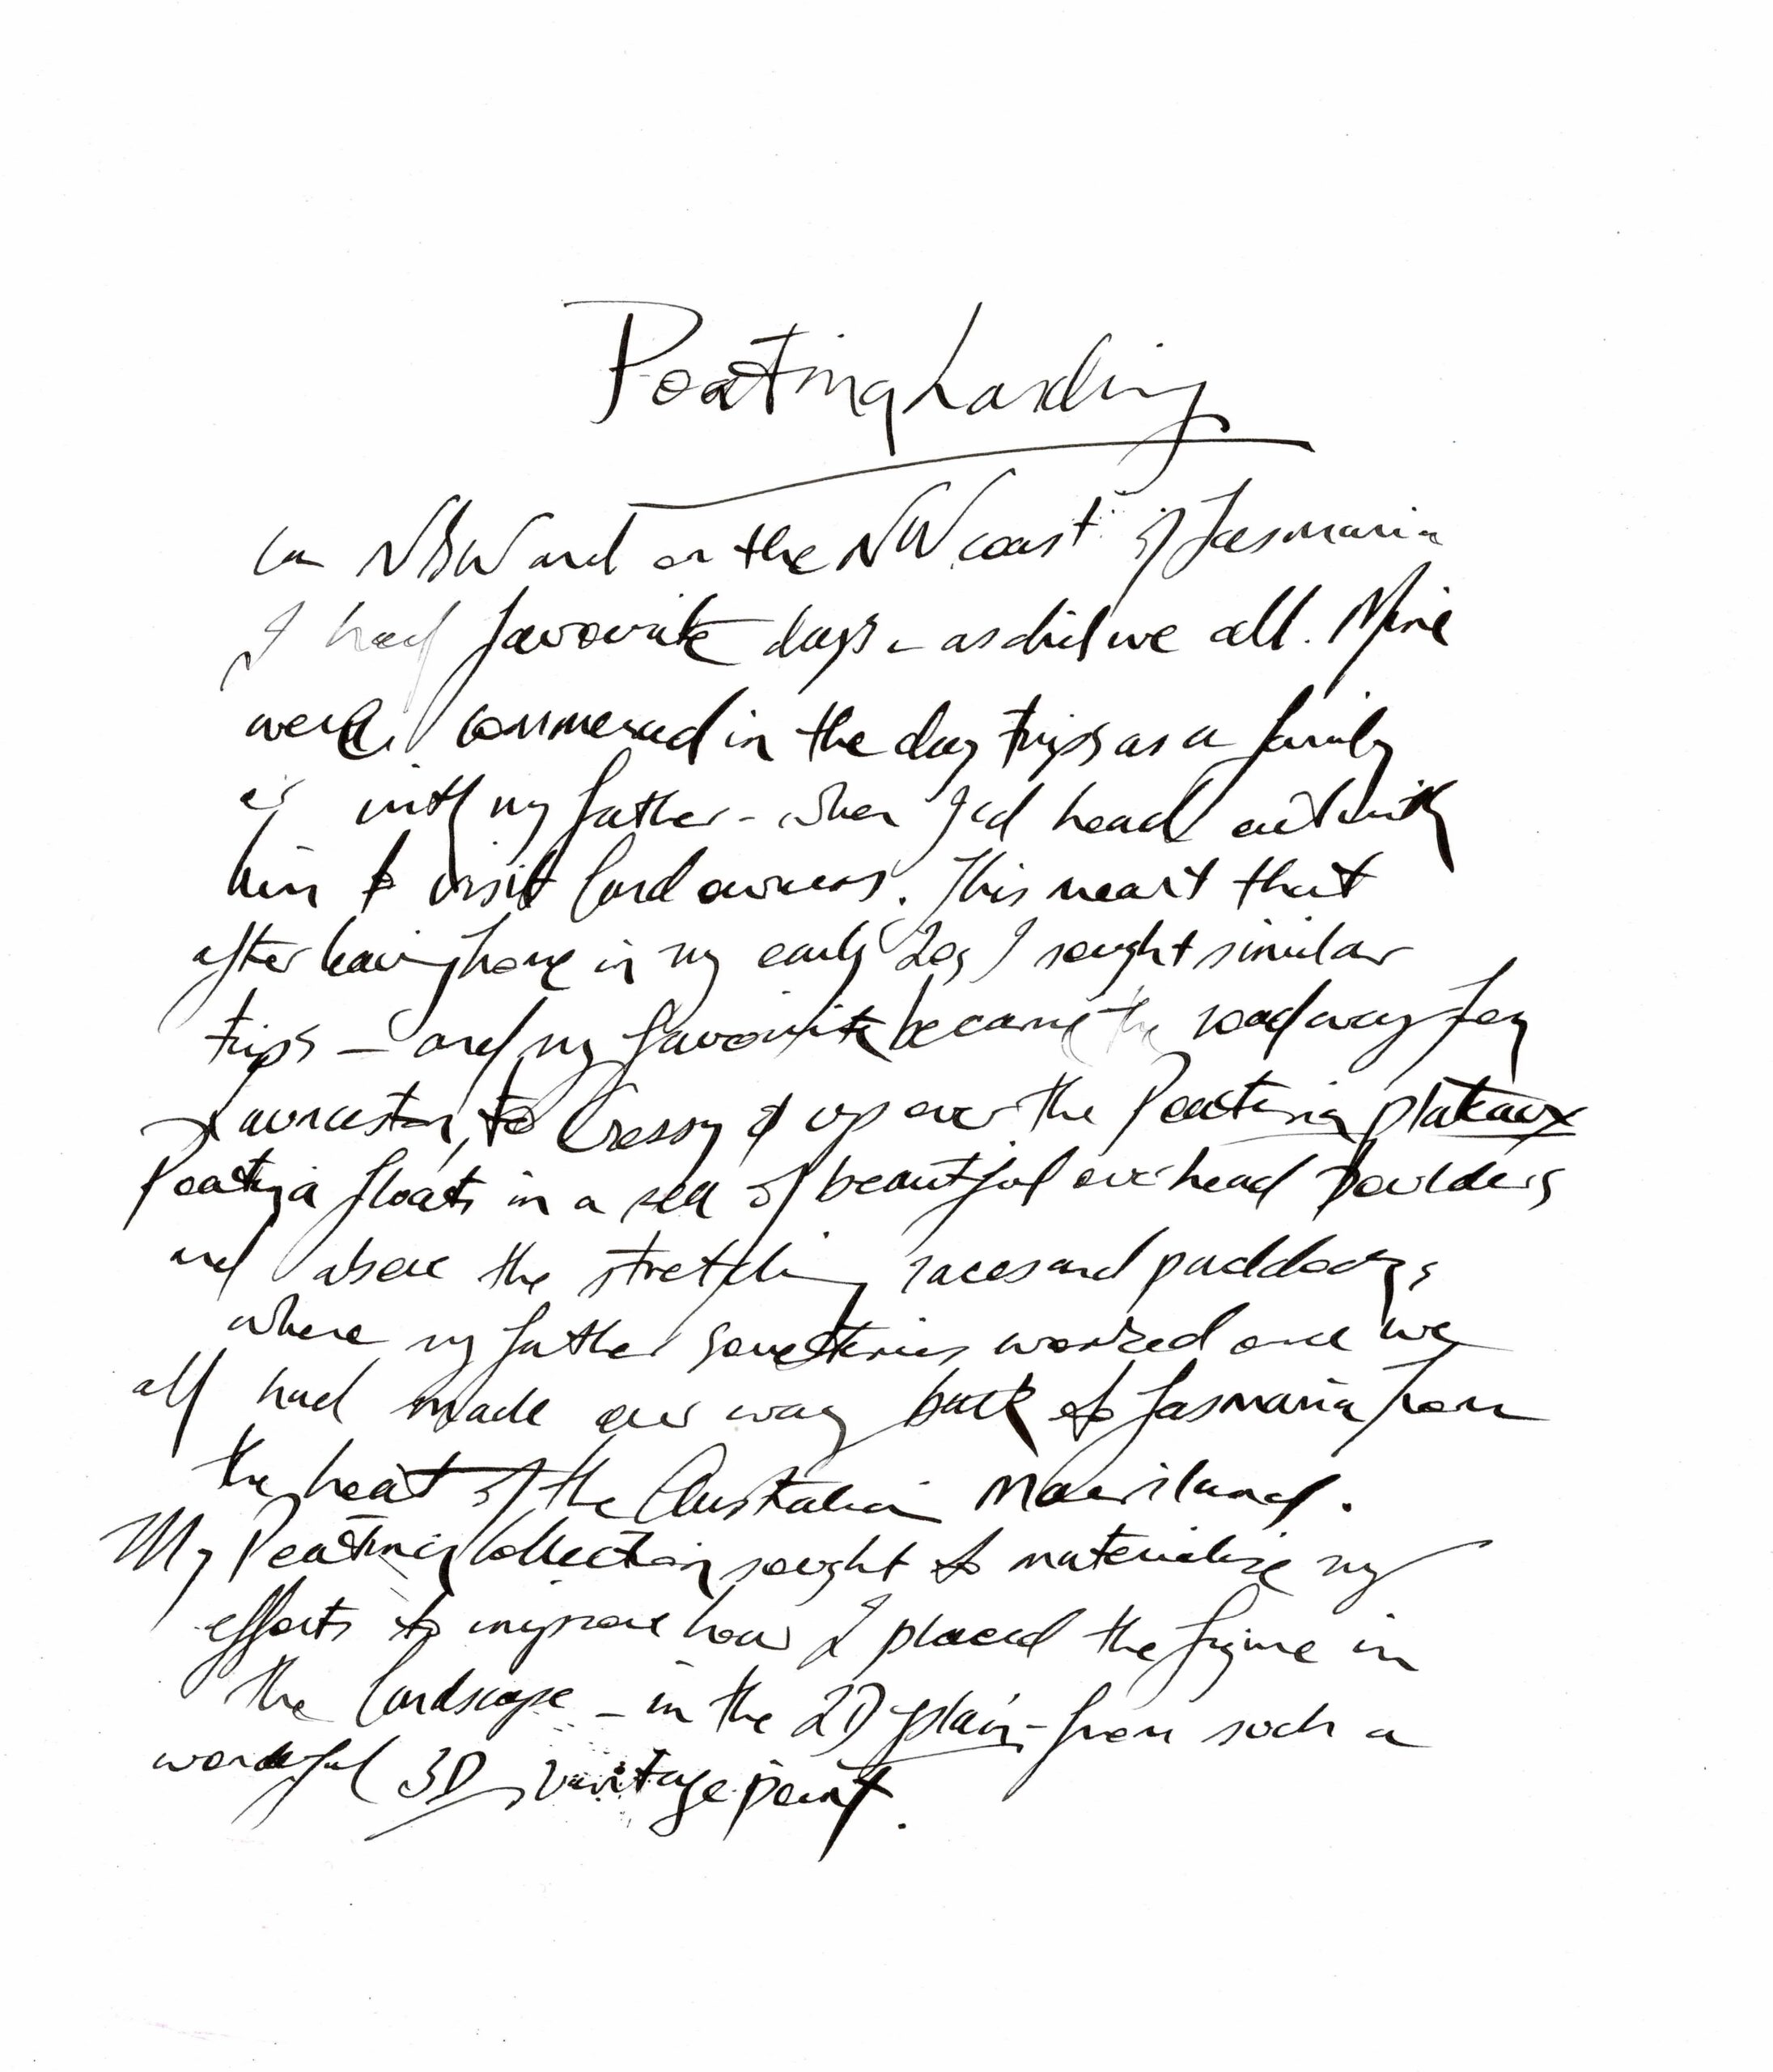 Poatina Landing
In NSW and on the NW coast of Tasmania
I had favourite days - as did we all. Mine
were in the day trips as a family
or with my father - when I'd head out with
him to visit land owners. This meant that
after leaving home in my early 20s I sought similar
trips - and my favourite became the roadway from
Launceston, to Cressy & up over the Poatina plateaux
Poatina floats in a sea of beautiful overhead boulders
and above the stretching races and paddocks
where my father sometimes worked once we
all had made our way back to Tasmania from
the heat of the Australian Mainland.
My Poatina Collection sought to materialise my
efforts to improve how I placed the figure in
the landscape - in the 2D plain - from such a
wonderful 3D vantage point.